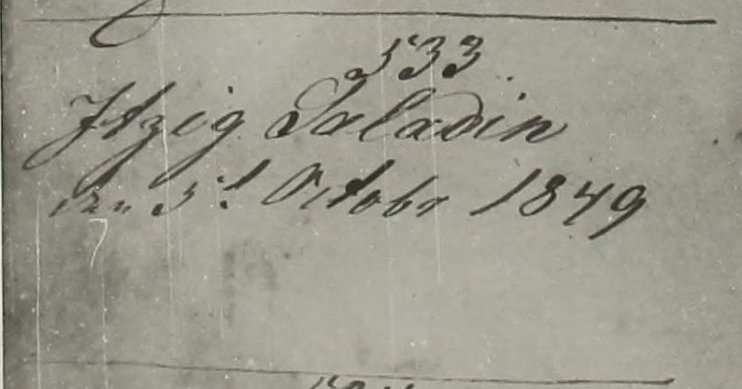 533.
Itzig Saladin
den 3t. Octobr 1849